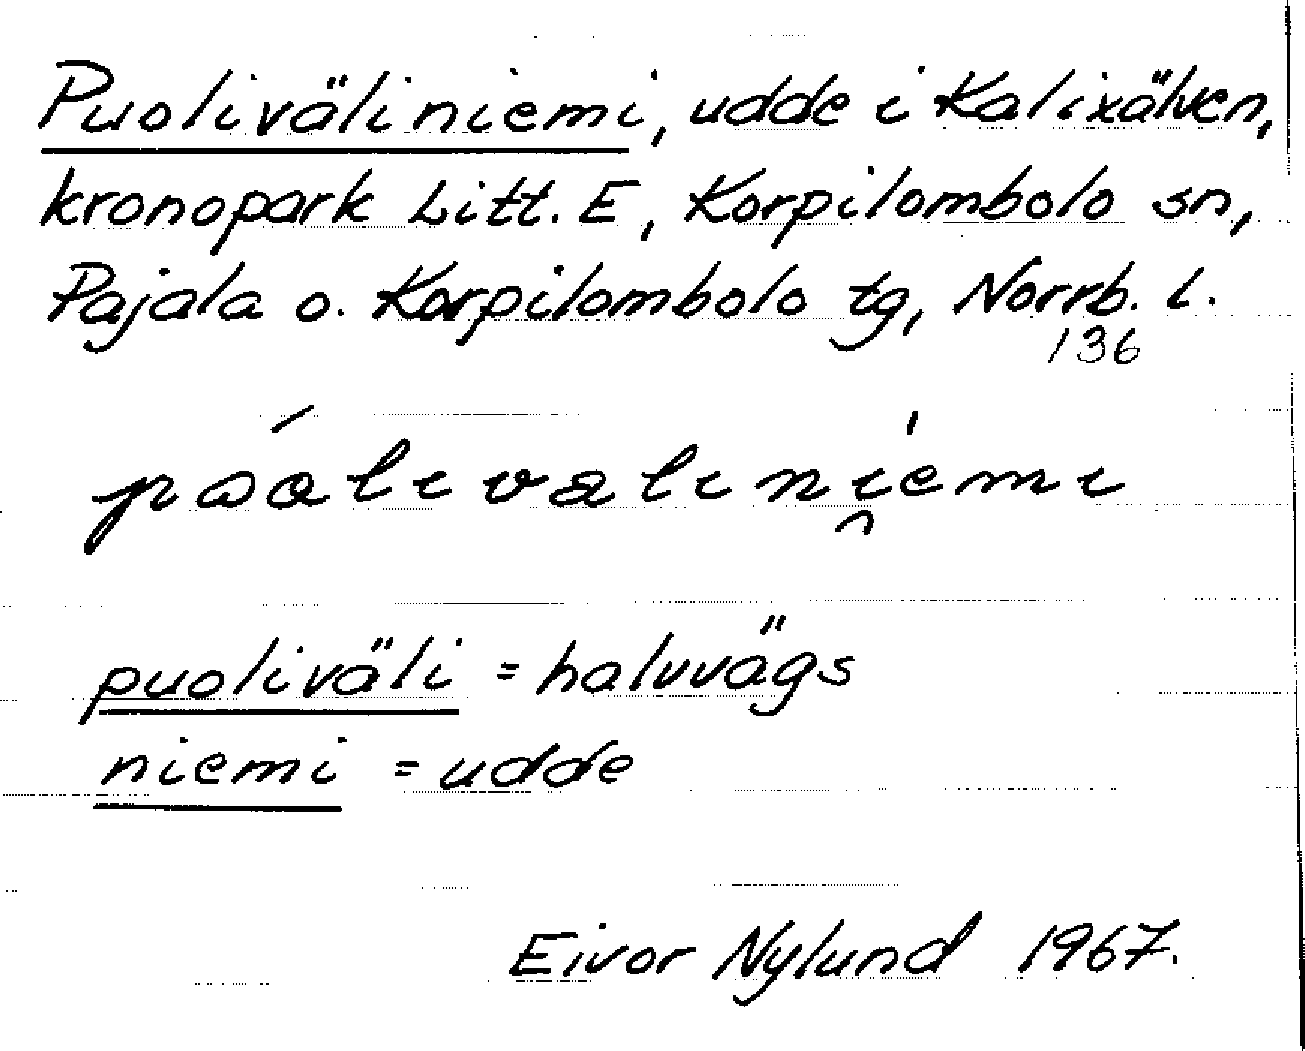 Puoliväliniemi, udde i Kalixälven,
kronopark Litt. E, Korpilombolo sn,
Pajala o. Korpilombolo tg, Norrb. l.
136
puoliväli = halvvägs
niemi = udde
Eivor Nylund 1967.